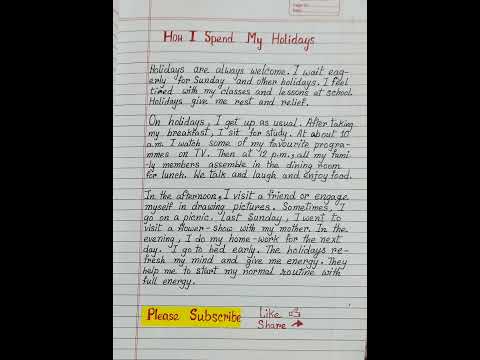 How I Spend My Holidays
Holidays are always welcome. I wait eag-
erly for Sunday and other holidays. I feel
tired with my classes and lessons at school.
Holidays give me rest and relief.
On holidays, I get up as usual. After taking
my breakfast, I sit for study. At about 10
a.m. I watch some of my favourite progra-
mmes on TV. Then at 12 p.m., all my fami-
ly members assemble in the dining room
for lunch. We talk and laugh and enjoy food.
In the afternoon, I visit a friend or engage
myself in drawing pictures. Sometimes, I
go on a picnic. Last Sunday, I went to
visit a flower-show with my mother. In the
evening, I do my home-work for the next
day. I go to bed early. The holidays re-
fresh my mind and give me energy. They
help me to start my normal routine with
full energy.
Please Subscribe Like
Share